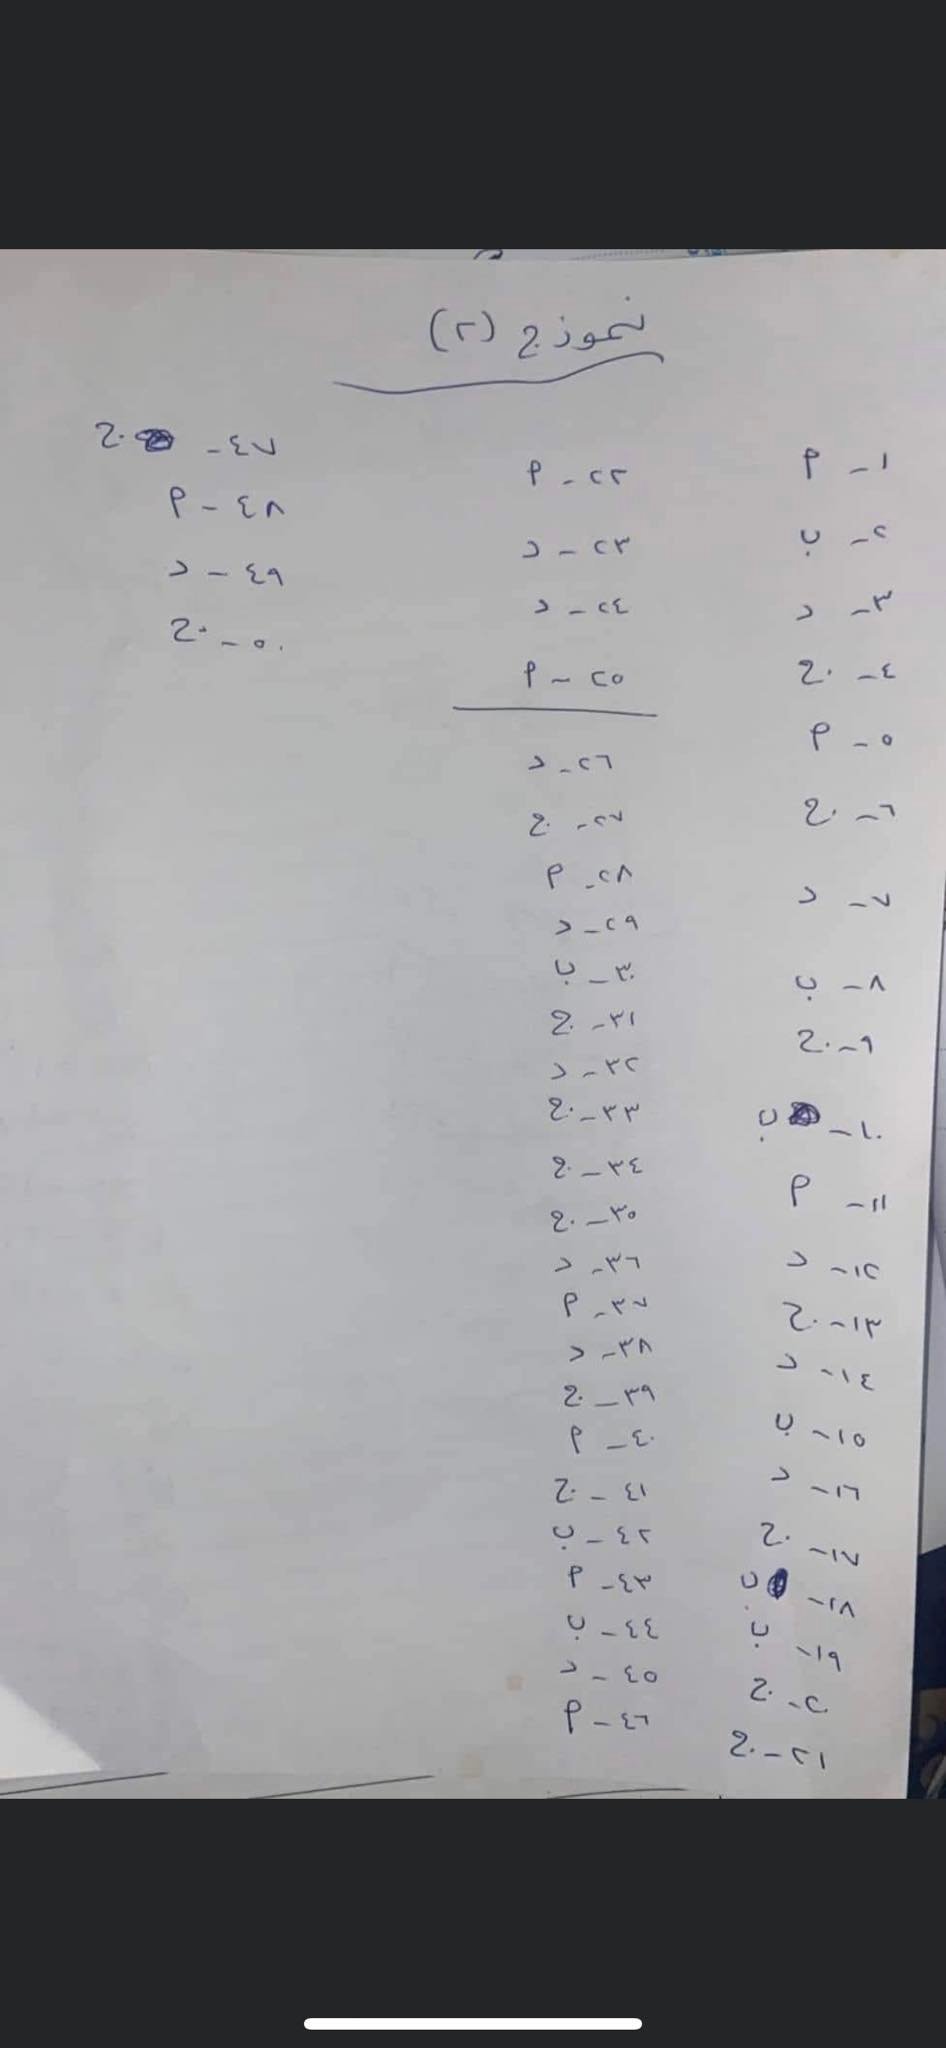 نموذج (٢)
١- أ
٢- ب
٣- د
٤- ج
٥- أ
٦- ج
٧- د
٨- ب
٩- ج
١٠- ب
١١- أ
١٢- د
١٣- ج
١٤- د
١٥- ب
١٦- د
١٧- ج
١٨- ب
١٩- ب
٢٠- ج
٢١- ج
٢٢- أ
٢٣- د
٢٤- د
٢٥- أ
٢٦- د
٢٧- ج
٢٨- أ
٢٩- د
٣٠- ب
٣١- ج
٣٢- د
٣٣- ج
٣٤- ج
٣٥- ج
٣٦- د
٣٧- أ
٣٨- د
٣٩- ج
٤٠- أ
٤١- ج
٤٢- ب
٤٣- أ
٤٤- ب
٤٥- د
٤٦- أ
٤٧- ج
٤٨- أ
٤٩- د
٥٠- ج